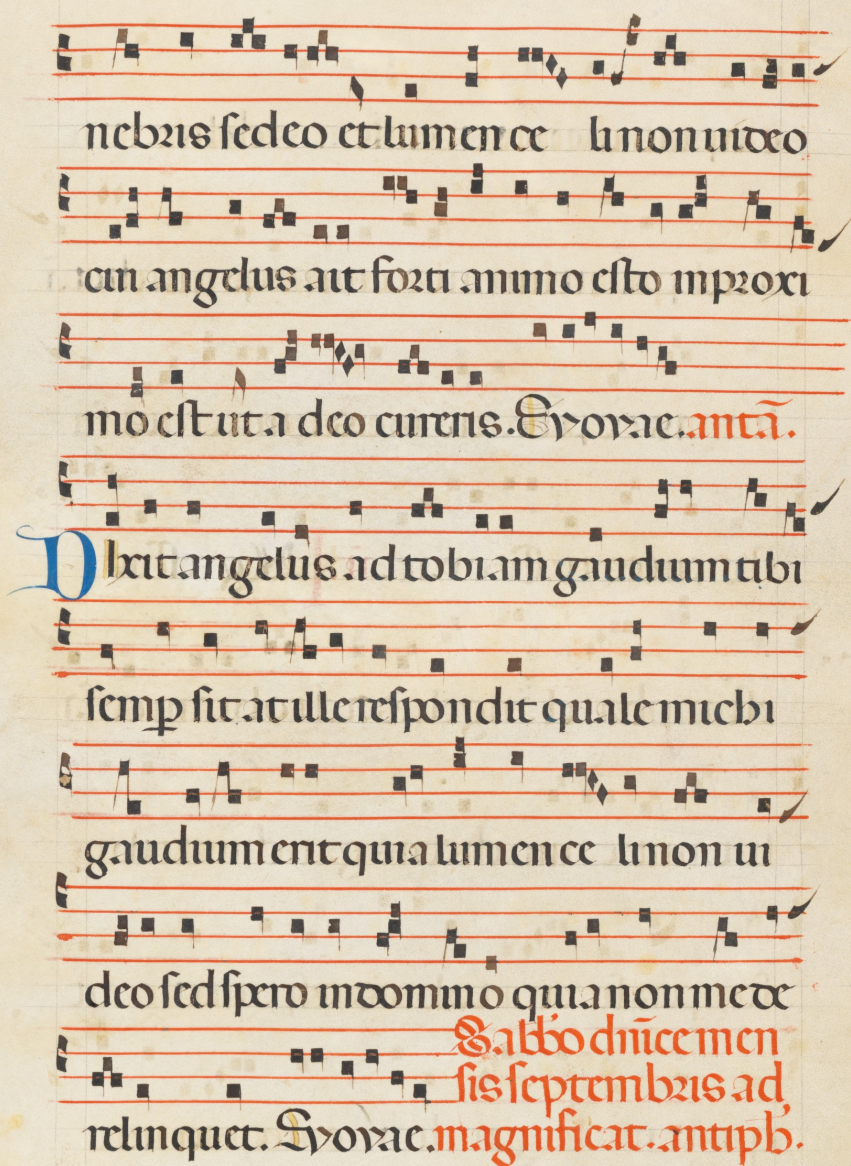 nebris sedeo et lumen ce li non uideo
cui angelus ait forti animo esto in proxi
mo est ut a deo cureris. Evovae. antā.
Dixit angelus ad tobiam gaudium tibi
semꝑ sit at ille respondit quale michi
gaudium erit quia lumen ce li non ui
deo sed spero in domino quia non me de
Sabbo dn̄ice men
sis septembris ad
relinquet. Evovae. magnificat. antiph.